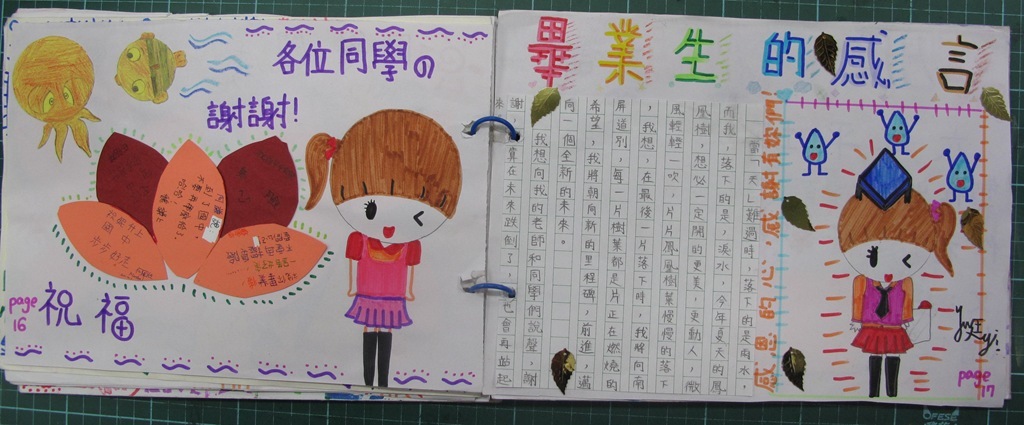 各位同學の
謝謝!
祝福
page
16
畢業生的感言
當「天」難過時,落下的是雨水,
而我,落下的是,淚水,今年夏天的鳳
凰樹,想必一定開的更美,更動人,微
風輕輕一吹,片片鳳凰樹葉慢慢的落下
,我想,在最後一片落下時,我將向南
屏道別,每一片樹葉都是片正在燃燒的
希望,我將朝向新的里程碑,前進,邁
向一個全新的未來。
我想向我的老師和同學們說聲 謝
謝,算在未來跌倒了,也會再站起
來
感恩的心,感謝有妳們!
page
17